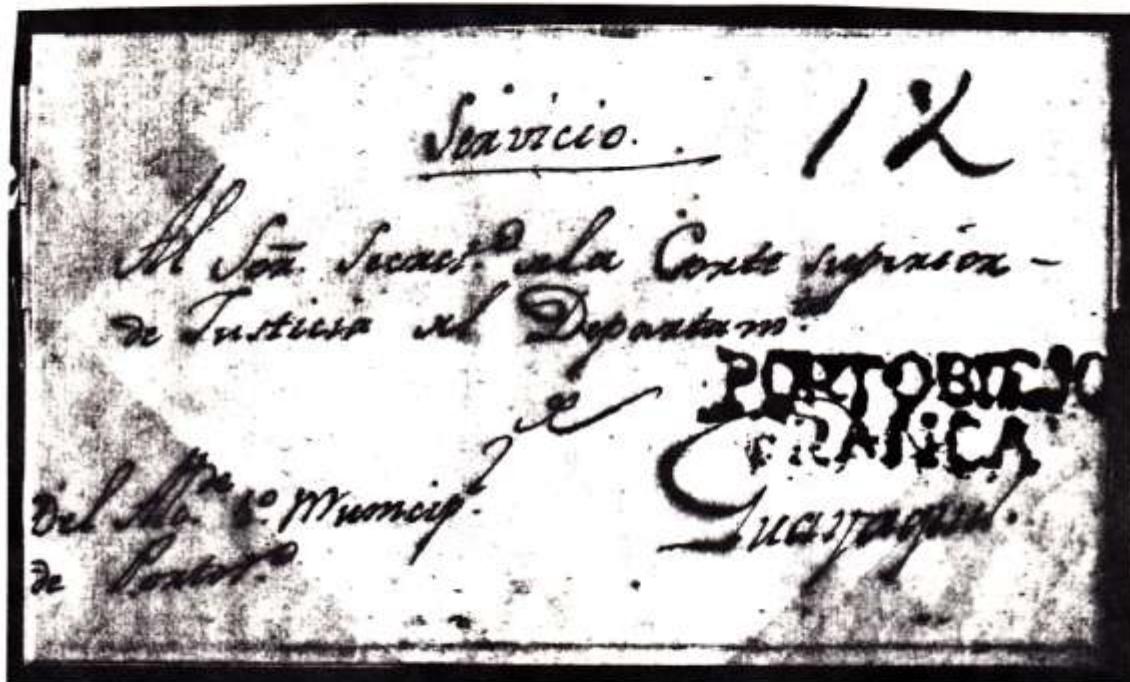 Servicio. 12
Al Señ. Secret.º de la Corte superior -
de Justicia del Departam.to
de
PORTOBIEJO
FRANCA
Guayaquil.
Del Alc.de 1.º Municip.l
de Portov.º